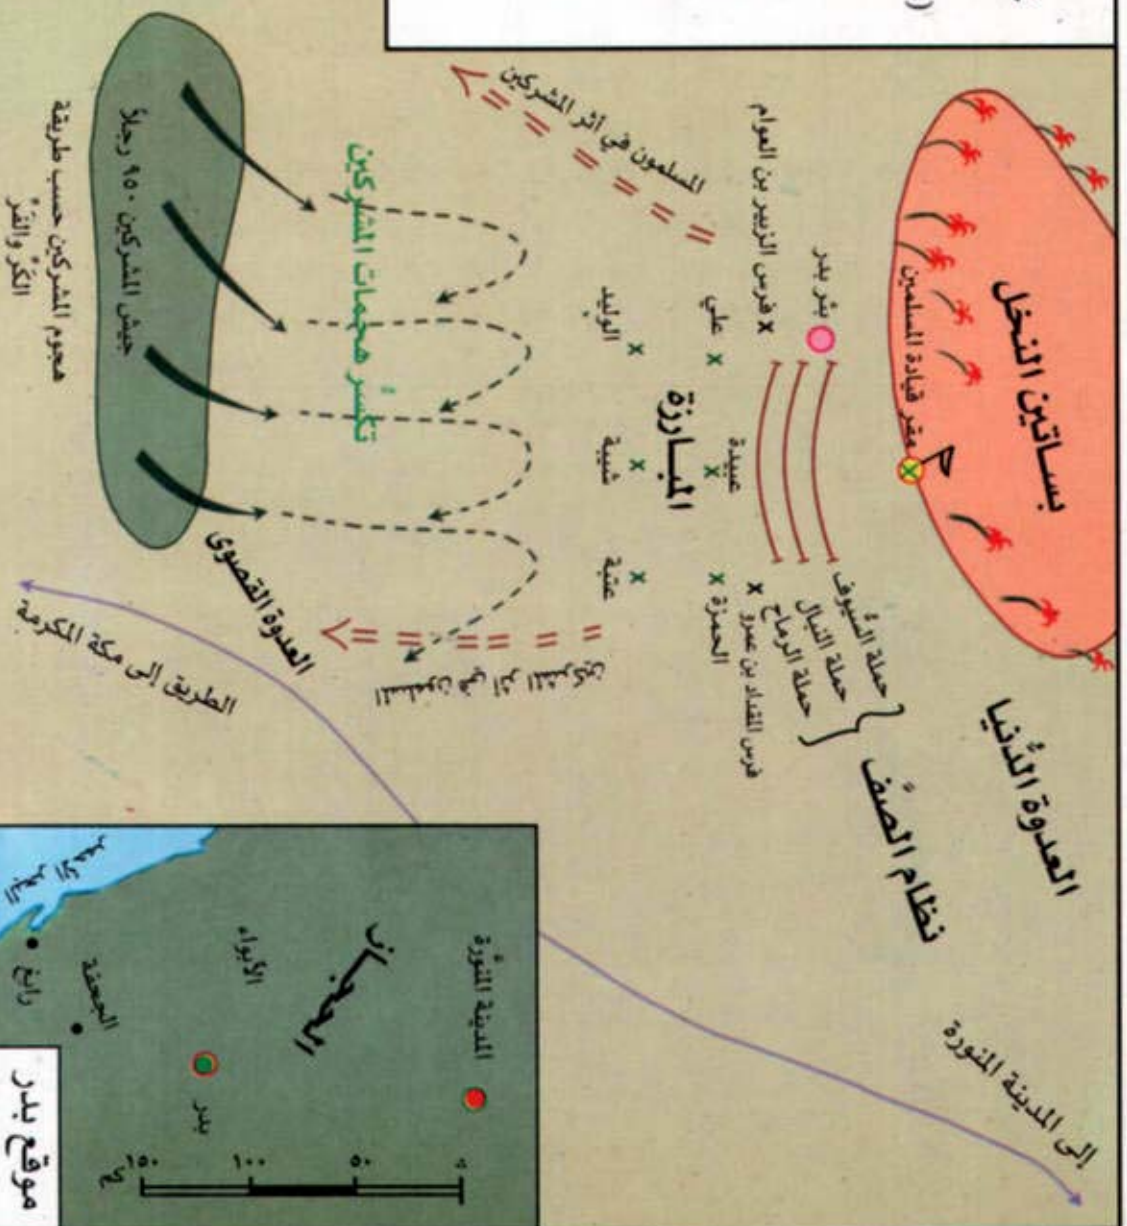 بساتين النخل
مقر قيادة المسلمين
العدوة الدُنيا
بئر بدر
نظام الصَف
حملة السُيوف
حملة النبال
حملة الرماح
x فرس الزبير بن العوام
x فرس المقداد بن عمرو
علي x
عبيدة x
الحمزة x
المبارزة
الوليد x
شيبة x
عتبة x
المسلمون في أثر المشركين
المسلمون في أثر المشركين
تكسُر هجمات المشركين
جيش المشركين ٩٥٠ رجلاً
هجوم المشركين حسب طريقة
الكَرّ والفَرّ
العدوة القصوى
الطريق إلى مكة المكرمة
إلى المدينة المنورة
المدينة المنوّرة
الحجاز
الأبواء
بدر
الجحفة
رابغ
البحر الأحمر
٠ ٥٠ ١٠٠ ١٥٠
موقع بدر